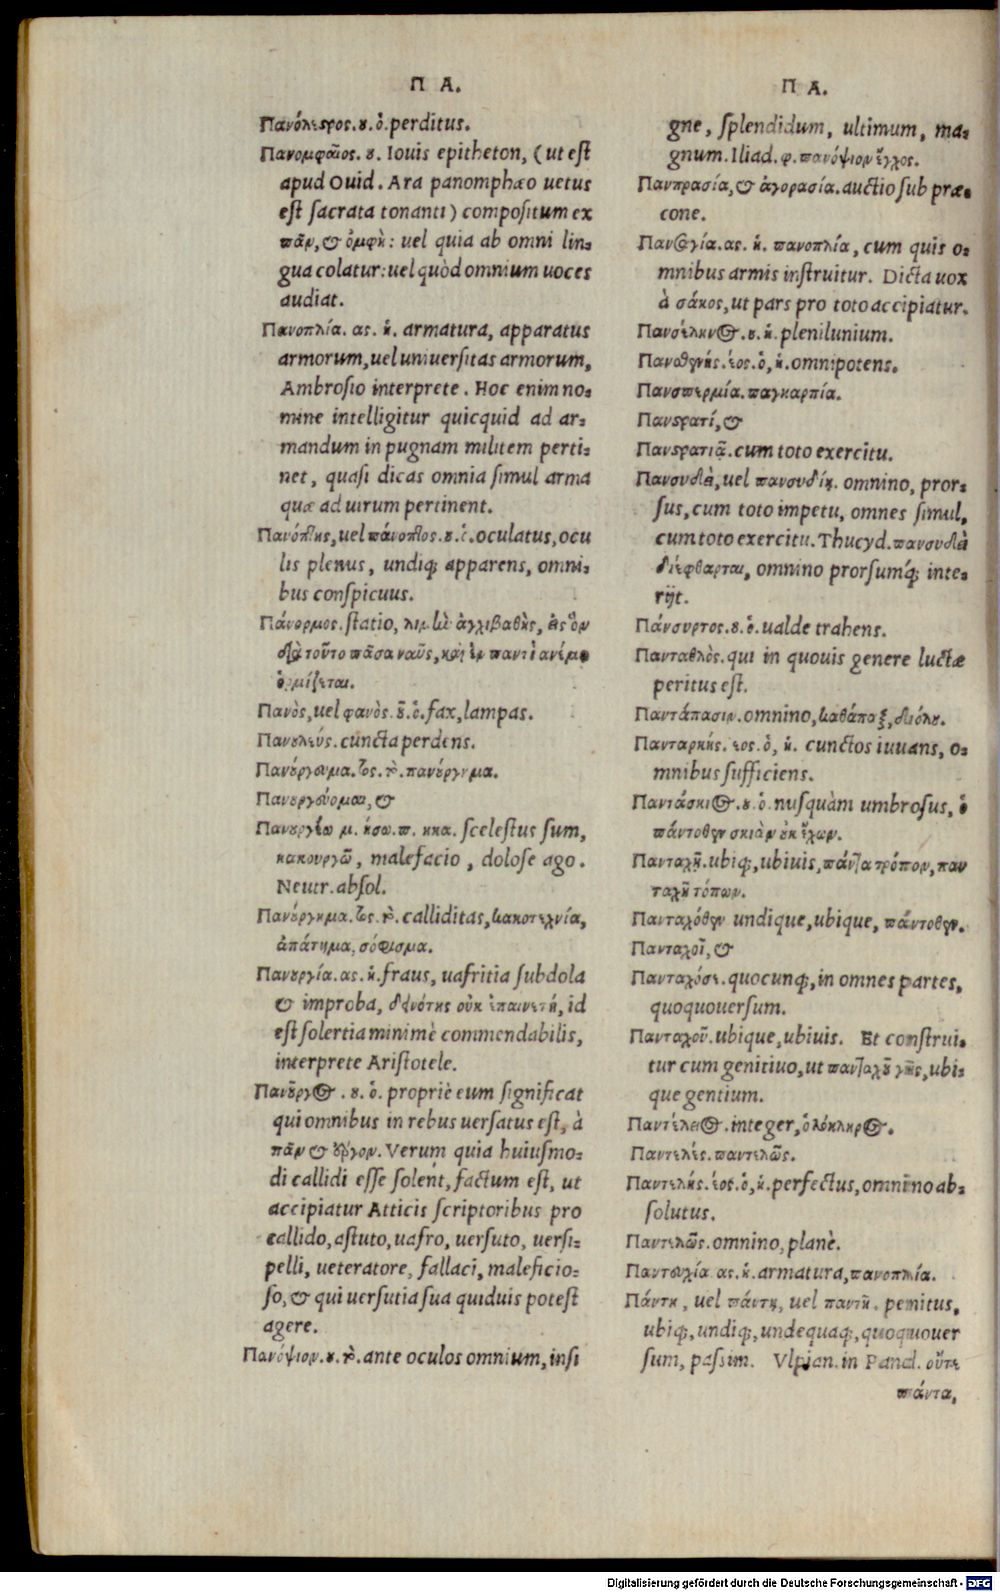 Π Α.
Πανόλεθρος. ου. ὁ. perditus.
Πανομφαῖος. ου. Iouis epitheton, (ut est
apud Ouid. Ara panomphæo uetus
est sacrata tonanti) compositum ex
πᾶν, & ὀμφὴ: uel quia ab omni lin-
gua colatur: uel quòd omnium uoces
audiat.
Πανοπλία. ας. ἡ. armatura, apparatus
armorum, uel uniuersitas armorum,
Ambrosio interprete. Hoc enim no-
mine intelligitur quicquid ad ar-
mandum in pugnam militem perti-
net, quasi dicas omnia simul arma
quæ ad uirum pertinent.
Πανόπτης, uel πάνοπτος. ου. ὁ. oculatus, ocu
lis plenus, undiq; apparens, omni-
bus conspicuus.
Πάνορμος. statio, λιμὴν ἀγχιβαθὴς, εἰς ὃν
διὰ τοῦτο πᾶσα ναῦς, καὶ ἐν παντὶ ἀνέμῳ
ὁρμίζεται.
Πανὸς, uel φανὸς. οῦ. ὁ. fax, lampas.
Πανουλεύς. cuncta perdens.
Πανούργευμα. τος. τὸ. πανούργημα.
Πανουργεύομαι, &
Πανουργέω μ. ήσω. π. ηκα. scelestus sum,
κακουργῶ, malefacio, dolose ago.
Neutr. absol.
Πανούργημα. τος. τὸ. calliditas, κακοτεχνία,
ἀπάτημα, σόφισμα.
Πανουργία. ας. ἡ. fraus, uafritia subdola
& improba, δεινότης οὐκ ἐπαινετή, id
est solertia minimè commendabilis,
interprete Aristotele.
Πανοῦργος. ου. ὁ. propriè eum significat
qui omnibus in rebus uersatus est, à
πᾶν & ἔργον. Verum quia huiusmo-
di callidi esse solent, factum est, ut
accipiatur Atticis scriptoribus pro
callido, astuto, uafro, uersuto, uersi-
pelli, ueteratore, fallaci, maleficio-
so, & qui uersutia sua quiduis potest
agere.
Πανόψιον. ου. τὸ. ante oculos omnium, insi
Π Α.
gne, splendidum, ultimum, ma-
gnum. Iliad. φ. πανόψιον ἔγχος.
Πανπρασία, & ἀγορασία. auctio sub præ-
cone.
Πανσαγία. ας. ἡ. πανοπλία, cum quis o-
mnibus armis instruitur. Dicta uox
à σάκος, ut pars pro toto accipiatur.
Πανσέληνος. ου. ἡ. plenilunium.
Πανσθενής. έος. ὁ, ἡ. omnipotens.
Πανσπερμία. παγκαρπία.
Πανστρατί, &
Πανστρατιᾷ. cum toto exercitu.
Πανσυδεὶ, uel πανσυδίῃ. omnino, pror-
sus, cum toto impetu, omnes simul,
cum toto exercitu. Thucyd. πανσυδεὶ
διέφθαρται, omnino prorsumq́; inte-
rijt.
Πάνσυρτος. ου. ὁ. ualde trahens.
Πανταθλὸς. qui in quouis genere luctæ
peritus est.
Παντάπασιν. omnino, καθάπαξ, διόλου.
Πανταρκής. εος. ὁ, ἡ. cunctos iuuans, o-
mnibus sufficiens.
Παντάσκιος. ου. ὁ. nusquàm umbrosus, ὁ
πάντοθεν σκιὰν οὐκ ἔχων.
Πανταχῆ. ubiq;, ubiuis, πάντα τρόπον, παν
ταχῆ τόπων.
Πανταχόθεν undique, ubique, πάντοθεν.
Πανταχοῖ, &
Πανταχόσε. quocunq;, in omnes partes,
quoquouersum.
Πανταχοῦ. ubique, ubiuis. Et construi-
tur cum genitiuo, ut πανταχοῦ γῆς, ubi-
que gentium.
Παντέλειος. integer, ὁλόκληρος.
Παντελές. παντελῶς.
Παντελής. έος. ὁ, ἡ. perfectus, omnino ab-
solutus.
Παντελῶς. omnino, planè.
Παντευχία ας. ἡ. armatura, πανοπλία.
Πάντη, uel πάντῃ, uel παντῆ. penitus,
ubiq;, undiq;, undequaq;, quoquouer
sum, passim. Vlpian. in Pand. οὔτε
πάντα,
Digitalisierung gefördert durch die Deutsche Forschungsgemeinschaft - DFG